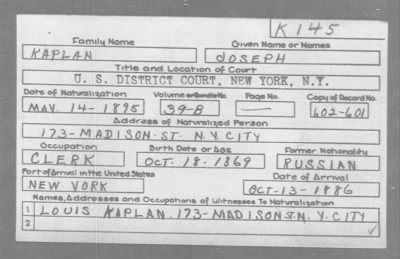 K145
Family Name Given Name or Names
KAPLAN JOSEPH
Title and Location of Court
U. S. DISTRICT COURT, NEW YORK, N.Y.
Date of Naturalization Volume or Bundle No. Page No. Copy of Record No.
MAY. 14-1895 39-B — 602-601
Address of Naturalized Person
173-MADISON-ST. N.Y. CITY
Occupation Birth Date or Age Former Nationality
CLERK OCT. 18. 1869 RUSSIAN
Port of Arrival in the United States Date of Arrival
NEW YORK OCT-13-1886
Names, Addresses and Occupations of Witnesses To Naturalization
1 LOUIS KAPLAN. 173-MADISON ST. N.Y. CITY
2